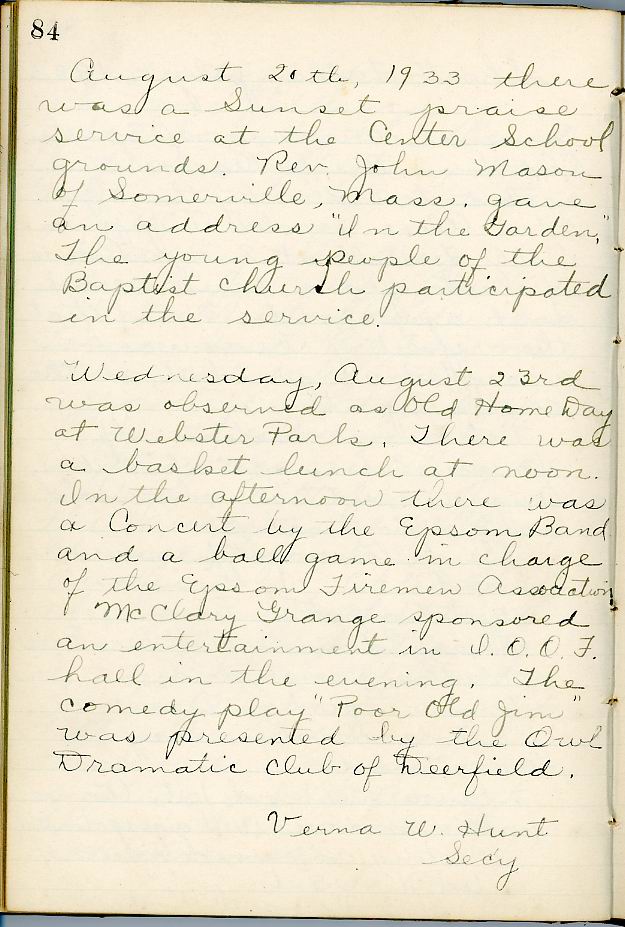 84
August 20th, 1933 there
was a Sunset praise
service at the Center School
grounds. Rev. John Mason
of Somerville, Mass. gave
an address "In the Garden."
The young people of the
Baptist church participated
in the service.
Wednesday, August 23rd
was observed as Old Home Day
at Webster Park. There was
a basket lunch at noon.
In the afternoon there was
a Concert by the Epsom Band
and a ball game in charge
of the Epsom Firemen Association
McClary Grange sponsored
an entertainment in I.O.O.F.
hall in the evening. The
comedy play "Poor Old Jim"
was presented by the Owl
Dramatic Club of Deerfield.
Verna W. Hunt
Secy